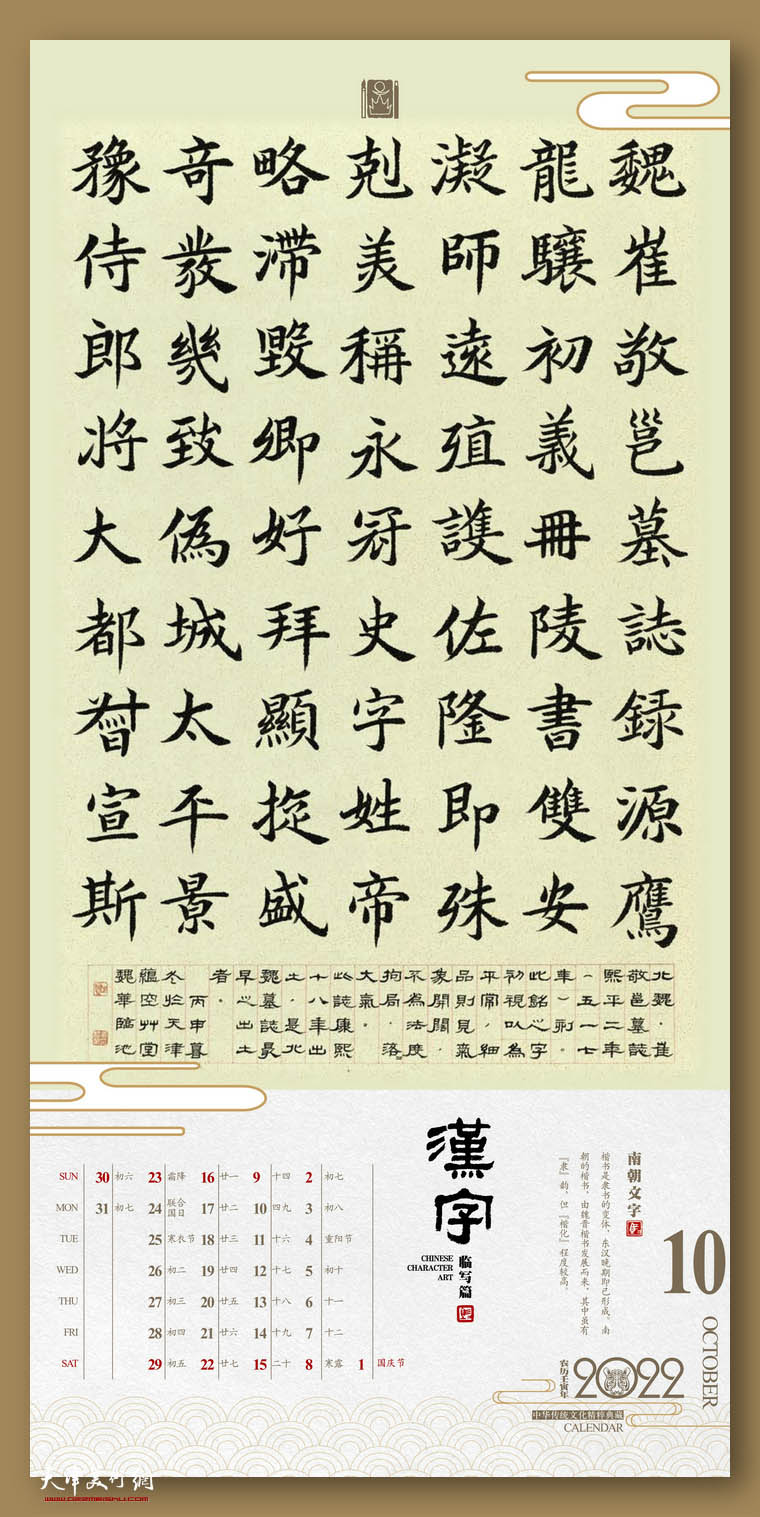 魏崔敬邕墓誌録源鷹
龍驤初義冊陵書雙安
凝師遠殖護佐隆即殊
剋美稱永冠史字姓帝
略滯毀卿好拜顯揔盛
奇發幾致偽城太平景
豫侍郎將大都督宣斯
北魏崔
敬邕墓誌
熙平二年
(五一七
年)刻。
此銘之字
初視以為
平常,細
品則見氣
象開闊,
不為法度
拘局,落落
大氣。
此誌康熙
十八年出
土,是北
魏墓誌最
早之出土
者。
丙申暮
冬於天津
蘊空草堂
魏華臨池
漢字
临写篇
CHINESE
CHARACTER
ART
南朝文字
楷书是隶书的变体,东汉晚期即已形成。南
朝的楷书,由魏晋楷书发展而来,其中虽有
『隶』韵,但『楷化』程度较高。
10
OCTOBER
SUN 30 初六 23 霜降 16 廿一 9 十四 2 初七
MON 31 初七 24 联合国日 17 廿二 10 四九 3 初八
TUE 25 寒衣节 18 廿三 11 十六 4 重阳节
WED 26 初二 19 廿四 12 十七 5 初十
THU 27 初三 20 廿五 13 十八 6 十一
FRI 28 初四 21 廿六 14 十九 7 十二
SAT 29 初五 22 廿七 15 二十 8 寒露 1 国庆节
农历壬寅年
2022
中华传统文化精粹典藏
CALENDAR
天津美術網